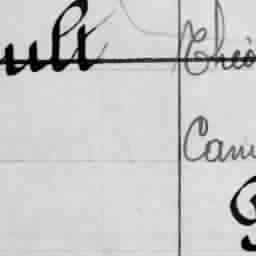 ult Théo
Cam